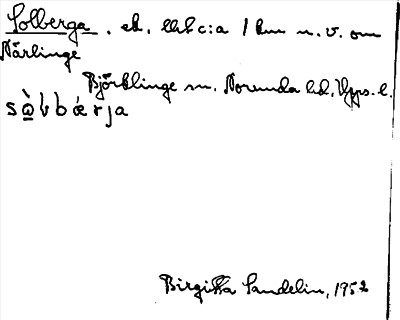 Solberga . ek. c:a 1 km n.v. om
Närlinge
Björklinge sn. Norunda hd. Upps. l.
sò̱lbǽrja
Birgitta Sandelin, 1952